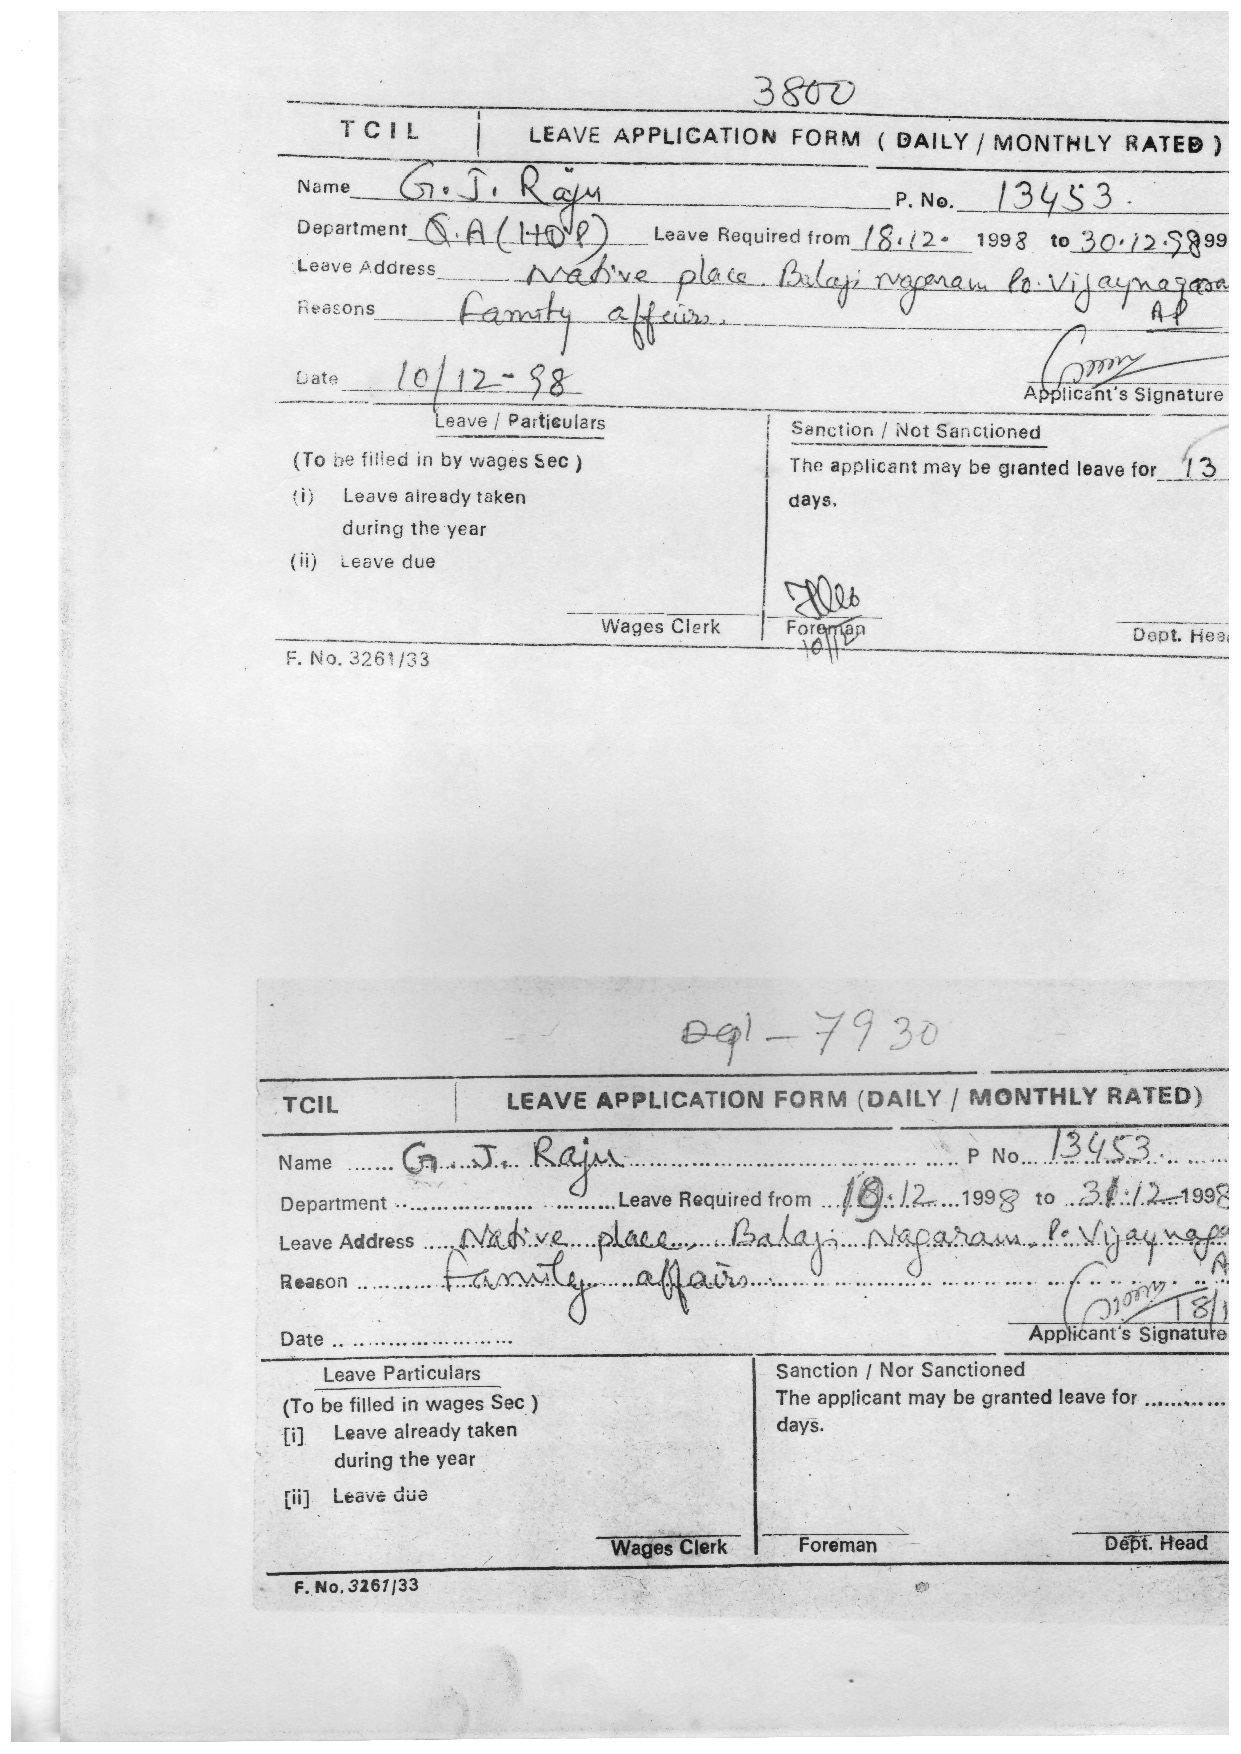 3800
TCIL LEAVE APPLICATION FORM ( DAILY / MONTHLY RATED )
Name G. J. Raju P. No. 13453.
Department Q.A (HDP) Leave Required from 18.12. 1998 to 30.12.98 99
Leave Address Native place. Balaji Nagaram Po. Vijaynagara
AP
Reasons Family affairs.
Date 10/12-98
Applicant's Signature
Leave / Particulars
(To be filled in by wages Sec )
(i) Leave already taken
during the year
(ii) Leave due
Wages Clerk
Sanction / Not Sanctioned
The applicant may be granted leave for 13
days.
Foreman
10/12
Dept. Hea
F. No. 3261/33
- 7930
TCIL LEAVE APPLICATION FORM (DAILY / MONTHLY RATED)
Name ....... G. J. Raju ............ P No... 13453.
Department .................... Leave Required from .../12 ...1998 to ..31.12.1998
Leave Address .... Native place, Balaji Nagaram, Po Vijaynaga
A
Reason .......... Family affairs ............
18/1
Date .........................
Applicant's Signature
Leave Particulars
(To be filled in wages Sec )
[i] Leave already taken
during the year
[ii] Leave due
Wages Clerk
Sanction / Nor Sanctioned
The applicant may be granted leave for ............
days.
Foreman
Dept. Head
F. No. 3261/33